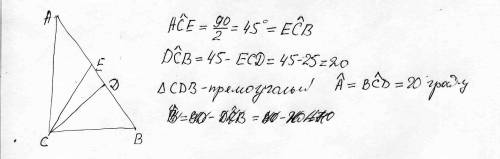 A
E
D
C
B
AĈE = 90/2 = 45° = EĈB
DĈB = 45 - ECD = 45-25=20
Δ CDB - прямоугольн! Â = BĈD = 20 град-у